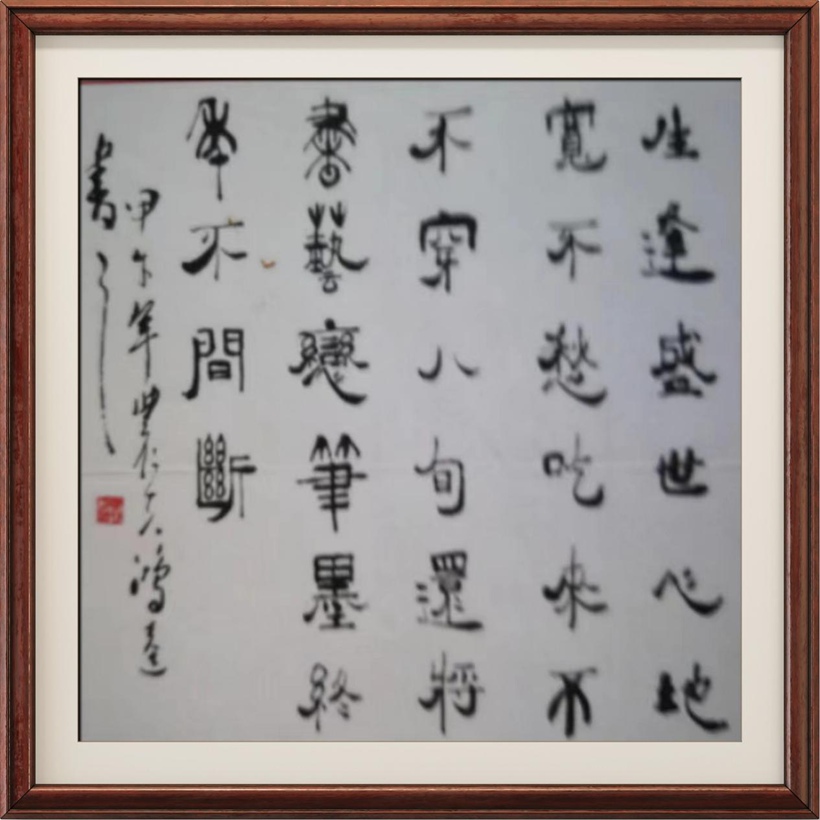 生逢盛世心地
寬不愁吃來不
不穿八旬還將
書藝戀筆墨終
年不間斷
甲午年 鴻達
書